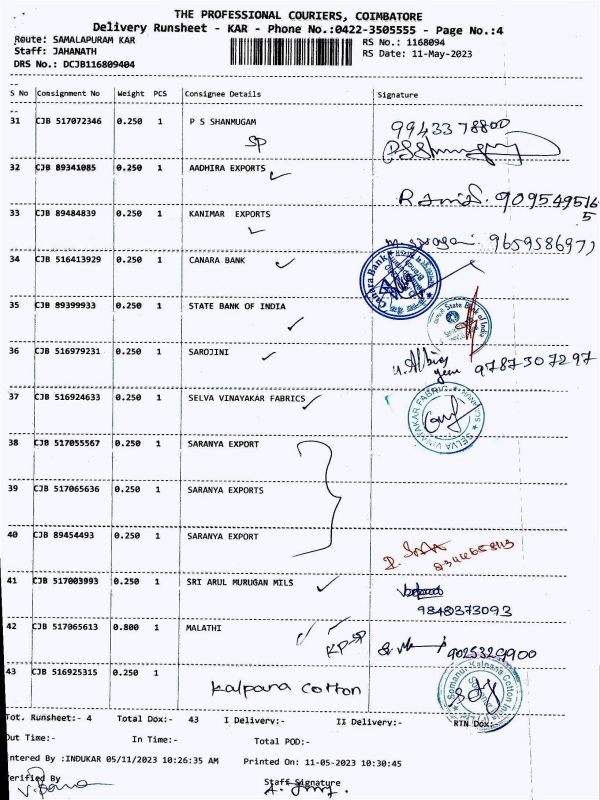 THE PROFESSIONAL COURIERS, COIMBATORE
Delivery Runsheet - KAR - Phone No.:0422-3505555 - Page No.:4
Route: SAMALAPURAM KAR RS No.: 1168094
Staff: JAHANATH RS Date: 11-May-2023
DRS No.: DCJB116809404
S No Consignment No Weight PCS Consignee Details Signature
31 CJB 517072346 0.250 1 P S SHANMUGAM 9943378800
SP
32 CJB 89341085 0.250 1 AADHIRA EXPORTS
9095495165
33 CJB 89484839 0.250 1 KANIMAR EXPORTS
9659586977
34 CJB 516413929 0.250 1 CANARA BANK
Canara Bank
35 CJB 89399933 0.250 1 STATE BANK OF INDIA
State Bank of India
36 CJB 516979231 0.250 1 SAROJINI
9787307297
37 CJB 516924633 0.250 1 SELVA VINAYAKAR FABRICS
SELVA VINAYAKAR FABRIC
38 CJB 517055567 0.250 1 SARANYA EXPORT
39 CJB 517065636 0.250 1 SARANYA EXPORTS
40 CJB 89454493 0.250 1 SARANYA EXPORT
41 CJB 517003993 0.250 1 SRI ARUL MURUGAN MILS
9848373093
42 CJB 517065613 0.800 1 MALATHI
KP SP 9025320900
43 CJB 516925315 0.250 1
Kalpana cotton
Somanur Kalpana Cotton India
Tot. Runsheet:- 4 Total Dox:- 43 I Delivery:- II Delivery:- RTN Dox:-
Out Time:- In Time:- Total POD:-
Entered By :INDUKAR 05/11/2023 10:26:35 AM Printed On: 11-05-2023 10:30:45
Verified By Staff Signature